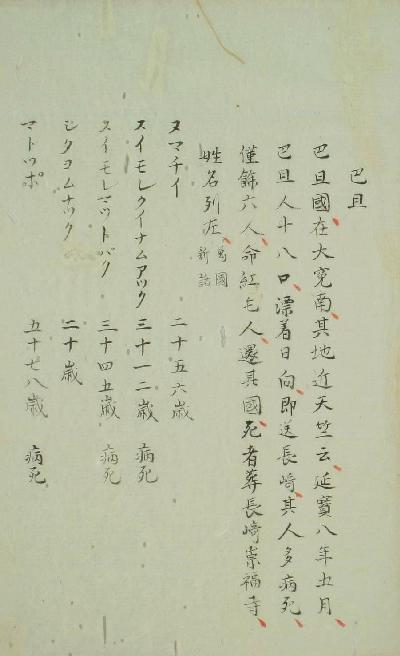 巴旦
巴旦國在大寃南其地近天竺云延寶八年五月
巴旦人十八口漂着日向即送長崎其人多病死
僅餘六人命紅毛人還其國死者葬長崎崇福寺
姓名列左 萬國新話
ヌマチイ 二十五六歳
スイモレクイナムアツク 三十一二歳 病死
スイモレマツトバク 三十四五歳 病死
シクヨムナツク 二十歳
マトツポ 五十七八歳 病死